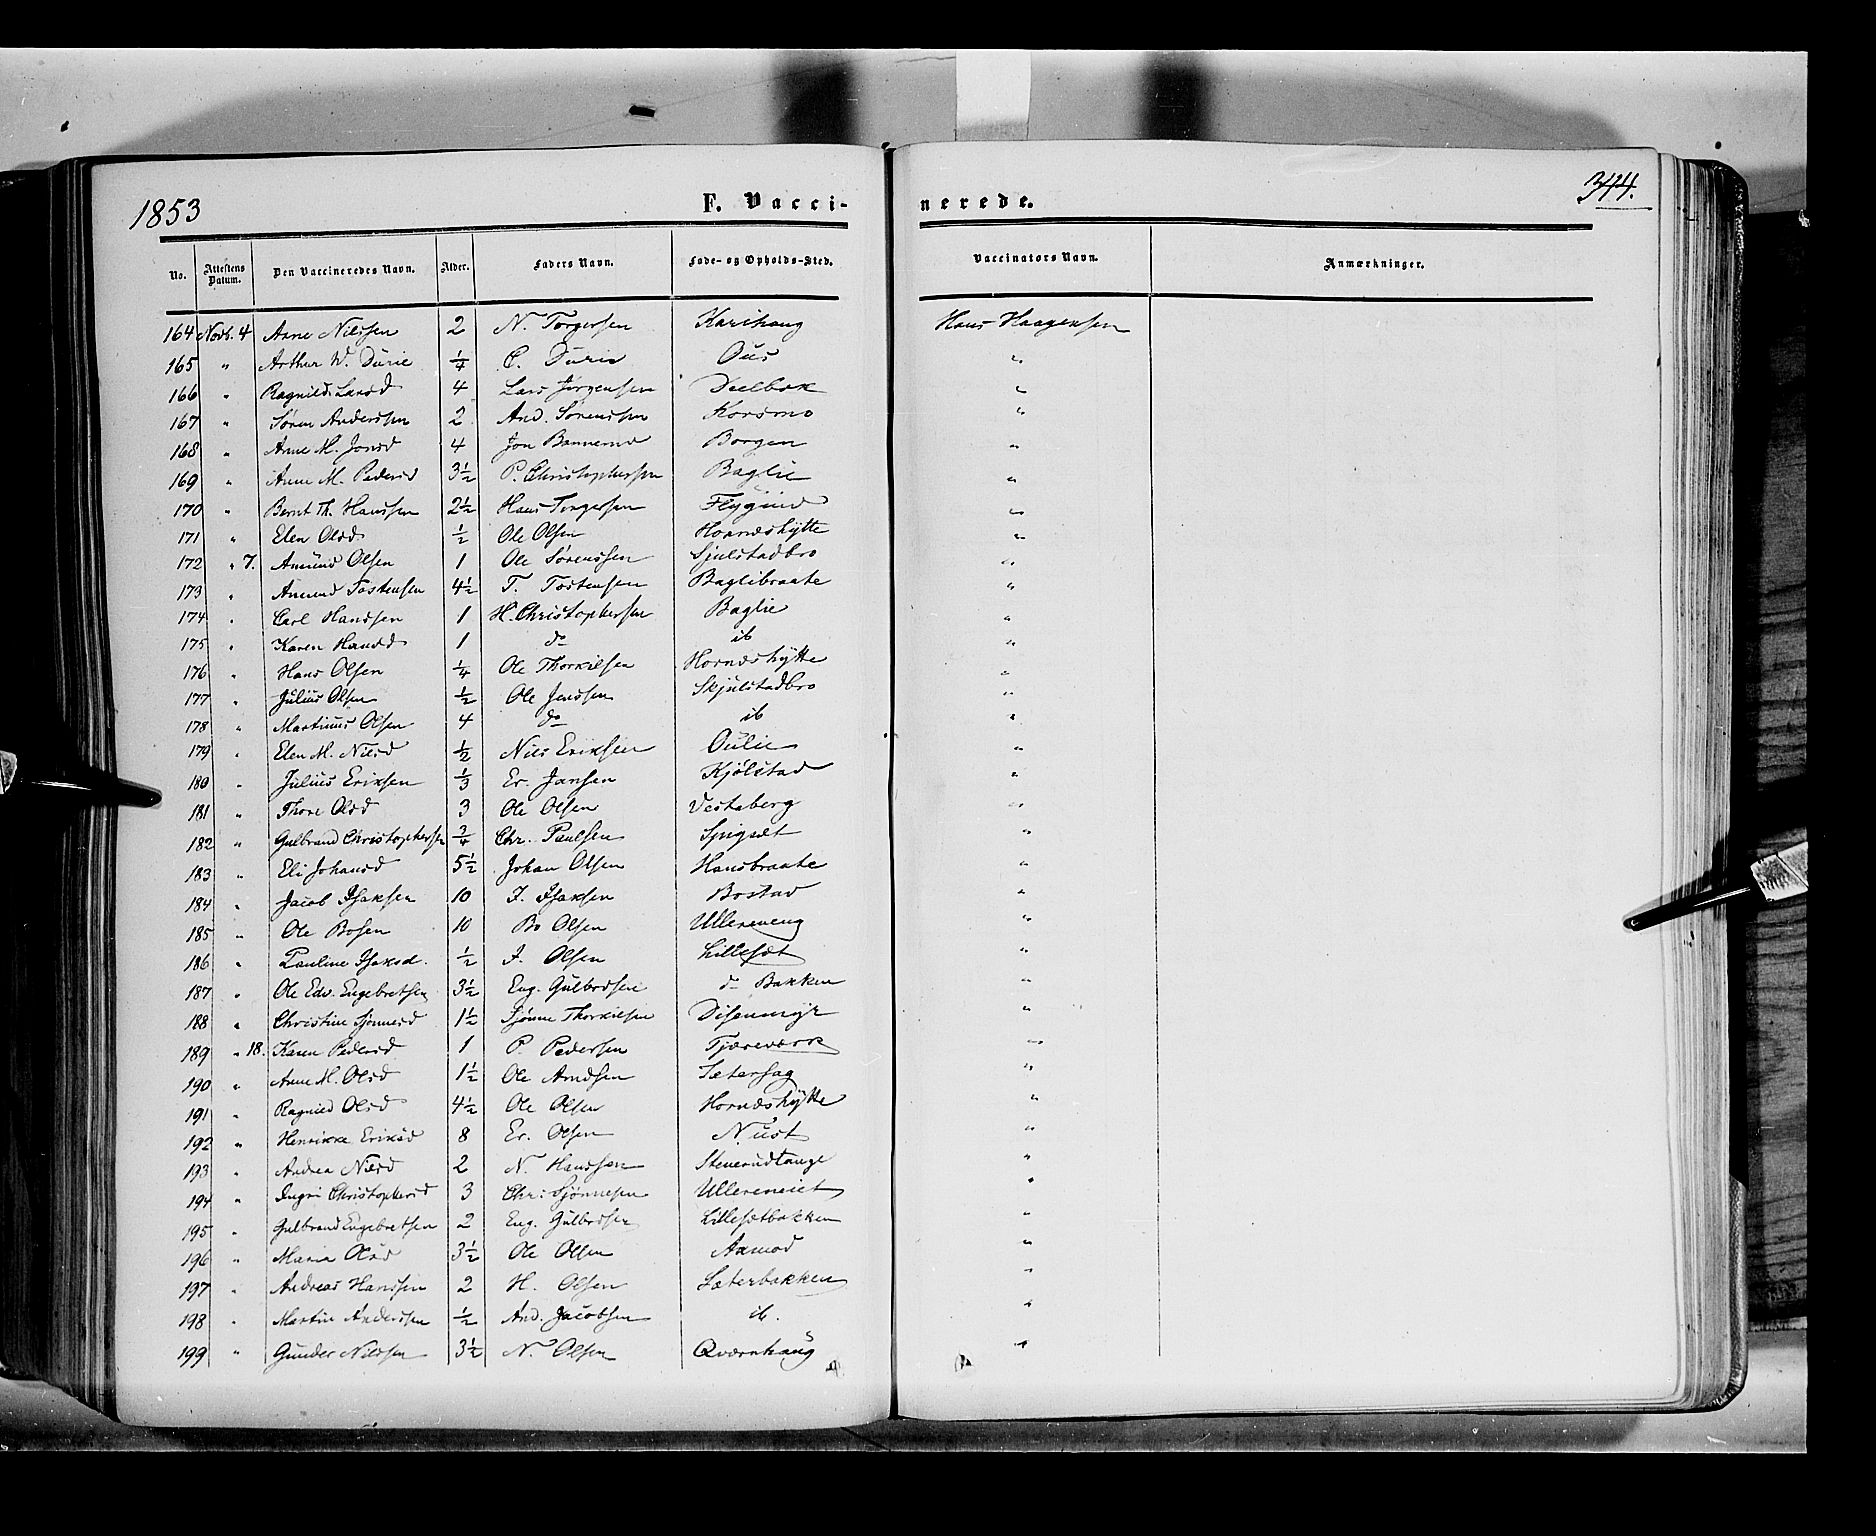 1853 F. Vacci- nerede. 344.
No. Attestens Datum. Den Vaccineredes Navn. Alder. Faders Navn. Føde- og Opholds-Sted. Vaccinators Navn. Anmærkninger.
164 Novb. 4 Arne Nilssen 2 N. Torgersen Karihaug Hans Haagensen
165 " Arthur W. Durie 1/4 C. Durie Ous "
166 " Ragnild Larsd 4 Lars Jørgensen "
167 " Søren Anderssen 2 And. Sørenssen Korsmo "
168 " Anne M. Jonsd 4 Jon Bannerud Borgen "
169 " Anne M. Pedersd 3 1/2 P. Christophersen Baglie "
170 " Bernt Th. Hanssen 2 1/2 Hans Torgersen Flygind "
171 " Elen Olsd 1/2 Ole Olsen Hornæshytte "
172 " 7. Amund Olsen 1 Ole Sørenssen Sjulstadbro "
173 " Amund Tostensen 4 1/2 T. Tostensen Baglibraate "
174 " Carl Handsen 1 H. Christophersen Baglie "
175 " Karen Hansd 1 do ib "
176 " Hans Olsen 1/4 Ole Thorkilsen Hornæshytte "
177 " Julius Olsen 1/2 Ole Jenssen Skjulstadbro "
178 " Martinus Olsen 4 do ib "
179 " Elen M. Nilsd 1/2 Nils Eriksen Oulie "
180 " Julius Eriksen 1/3 Er. Jansen Kjølstad "
181 " Thore Olsd 3 Ole Olsen Vestaberg "
182 " Gulbrand Christophersen 3/4 Chr. Paulsen Spigsæt "
183 " Eli Johansd 5 1/2 Johan Olsen Hansbraate "
184 " Jacob Isaksen 10 I. Isaksen Bostad "
185 " Ole Bosen 10 Bo Olsen Ullereneng "
186 " Pauline Isaksd. 1/2 I. Olsen Lillesæt "
187 " Ole Edv. Engebretsen 3 1/2 Eng. Gulbrdsen do Bakken "
188 " Christine Sjønnesd 1 1/2 Sjønne Thorkilsen Disenmyr "
189 " 18. Karen Pedersd 1 P. Pedersen Tjæreværk "
190 " Anne M. Olsd 1 1/2 Ole Arndsen Sætersag "
191 " Ragnild Olsd 4 1/2 Ole Olsen Hornæshytte "
192 " Henrikke Eriksd 8 Er. Olsen Nust "
193 " Andrea Nilsd 2 N. Hanssen Stenerudtange "
194 " Ingri Christophersd 3 Chr. Sjønnesen Ullereneiet "
195 " Gulbrand Engebretsen 2 Eng. Gulbrdsen Lillesætbakken "
196 " Maria Olsd 3 1/2 Ole Olsen Axmod "
197 " Andreas Hanssen 2 H. Olsen Sæterbakken "
198 " Martin Anderssen 1/2 And. Jacobsen ib. "
199 " Gunder Nilssen 3 1/2 N. Olsen Qværnhaug "